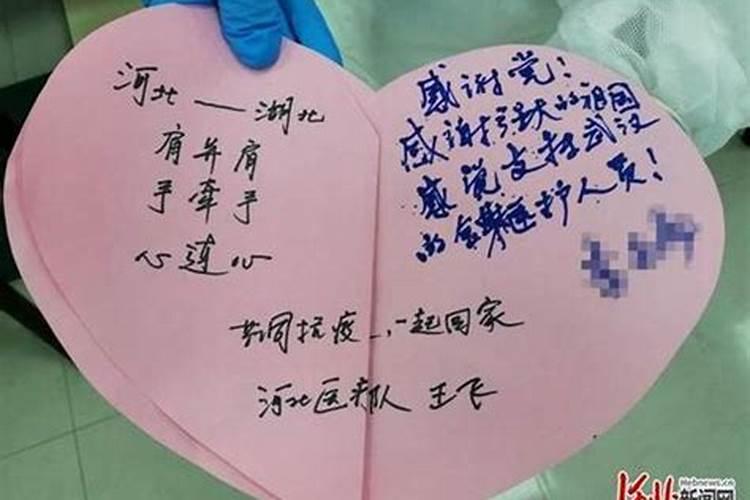 河北——湖北
肩并肩
手牵手
心连心
共同抗疫 一起回家
河北医疗队 王飞
感谢党！
感谢 的祖国
感谢支持武汉
的全 医护人员！
河北新闻网
Hebnews.cn